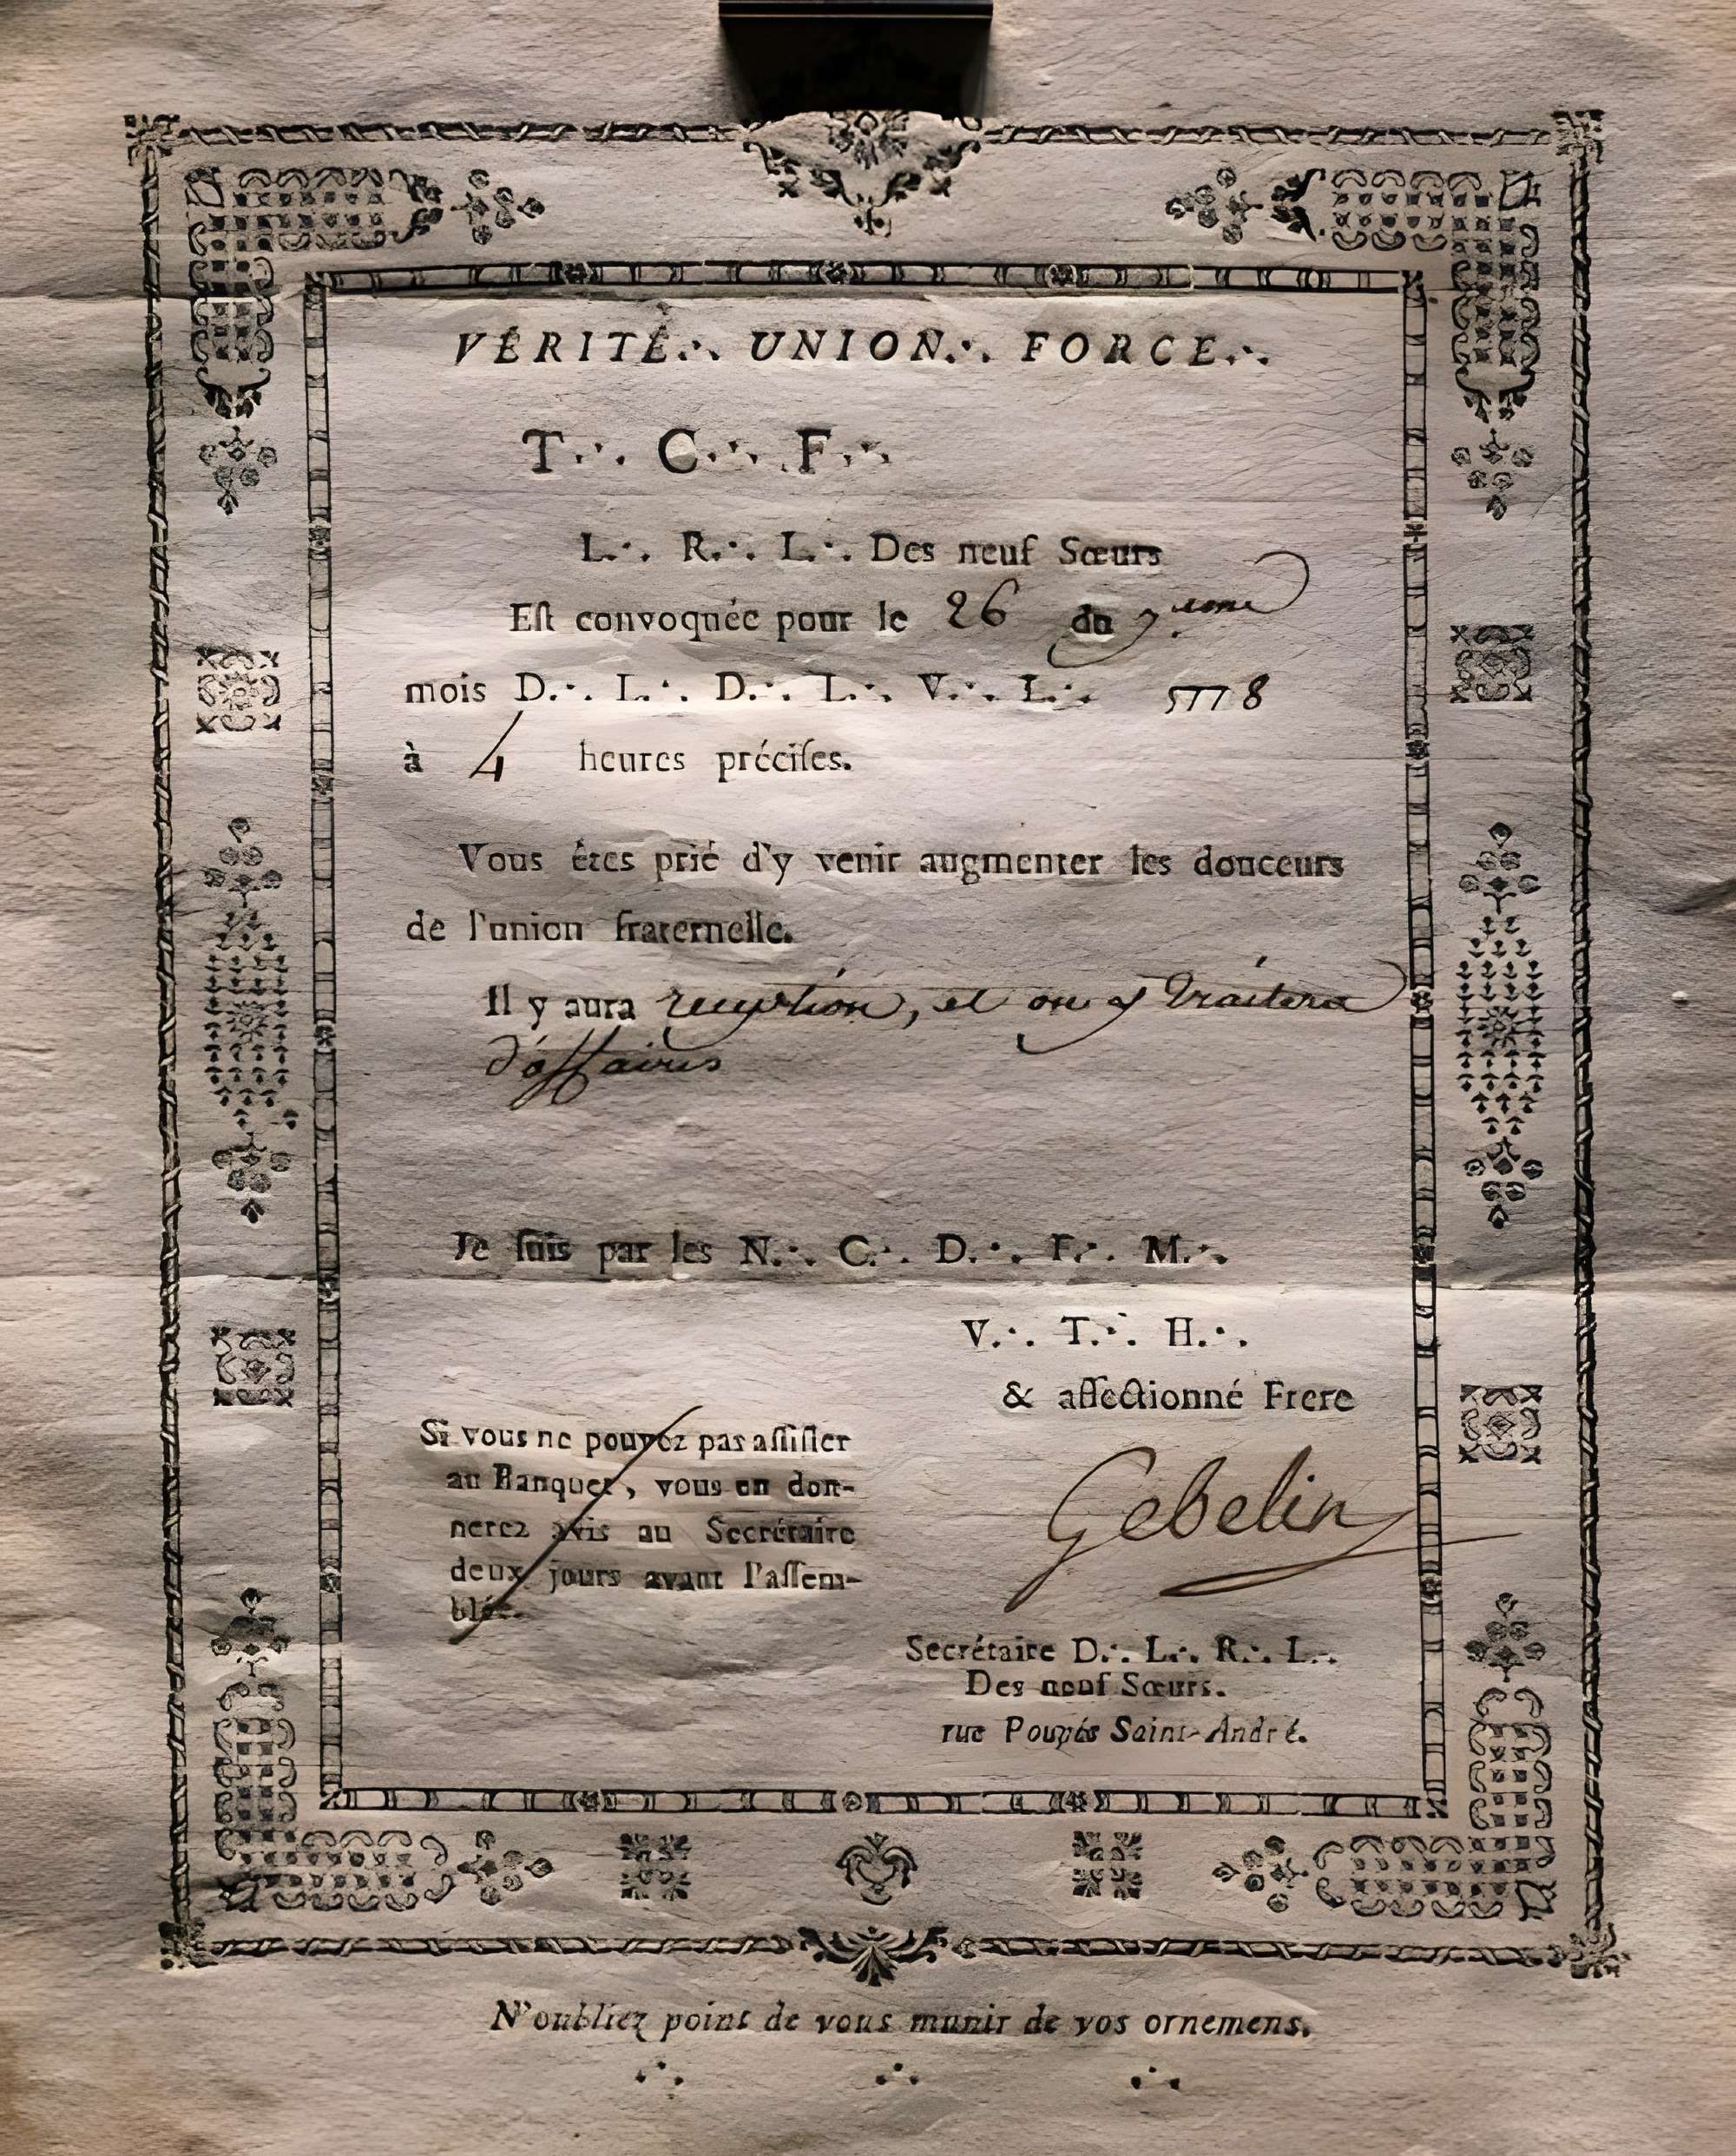 VÉRITÉ∴ UNION∴ FORCE∴
T∴ C∴ F∴
L∴ R∴ L∴ Des neuf Sœurs
Eſt convoquée pour le 26 du
mois D∴ L∴ D∴ L∴ V∴ L∴ 5778
à 4 heures préciſes.
Vous êtes prié d'y venir augmenter les douceurs
de l'union fraternelle.
Il y aura reception, et on y traitera
d'affaires
Je ſuis par les N∴ C∴ D∴ F∴ M∴
V∴ T∴ H∴
& affectionné Frere
Si vous ne pouvez pas aſſiſter
au Banquet, vous en don-
nerez avis au Secrétaire
deux jours avant l'aſſem-
blée.
Gebelin
Secrétaire D∴ L∴ R∴ L∴
Des neuf Sœurs.
rue Poupée Saint-André.
N'oubliez point de vous munir de vos ornemens.
∴ ∴ ∴